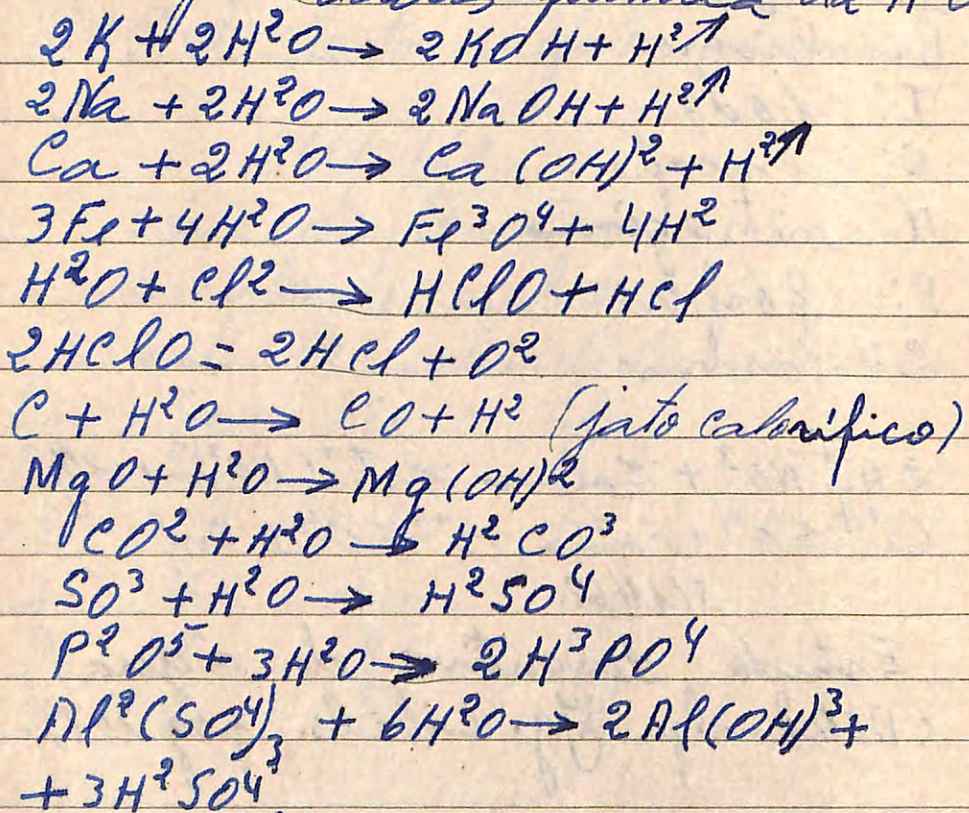 química da H
2K + 2H²O → 2KOH + H²↑
2Na + 2H²O → 2NaOH + H²↑
Ca + 2H²O → Ca(OH)² + H²↑
3Fe + 4H²O → Fe³O⁴ + 4H²
H²O + Cl² → HClO + HCl
2HClO = 2HCl + O²
C + H²O → CO + H² (jato calorífico)
MgO + H²O → Mg(OH)²
CO² + H²O → H²CO³
SO³ + H²O → H²SO⁴
P²O⁵ + 3H²O → 2H³PO⁴
Al²(SO⁴)₃ + 6H²O → 2Al(OH)³ +
+ 3H²SO⁴